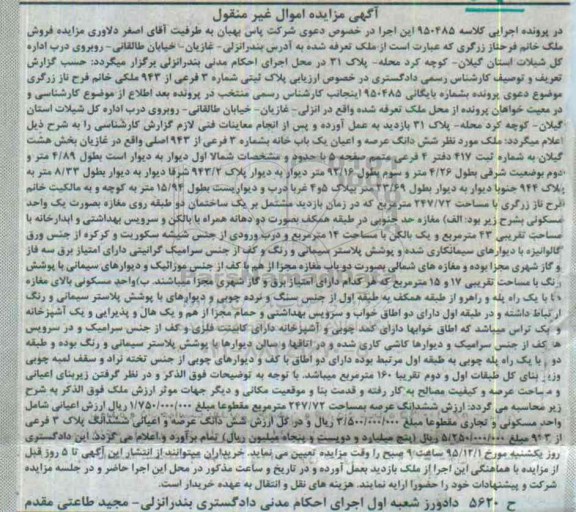 آگهی مزایده اموال غیر منقول
در پرونده اجرایی کلاسه ۹۵۰۴۸۵ این اجرا در خصوص دعوی شرکت پاس بهبان به طرفیت آقای اصغر دلاوری مزایده فروش
ملک خانم فرحناز زرگری که عبارت است از ملک تعرفه شده به آدرس بندرانزلی- غازیان- خیابان طالقانی- روبروی درب اداره
کل شیلات استان گیلان- کوچه کرد محله- پلاک ۳۱ در محل اجرای احکام مدنی بندرانزلی برگزار میگردد: حسب گزارش
تعریف و توصیف کارشناس رسمی دادگستری در خصوص ارزیابی پلاک ثبتی شماره ۳ فرعی از ۹۴۳ ملکی خانم فرح ناز زرگری
موضوع دعوی پرونده بشماره بایگانی ۹۵۰۴۸۵ اینجانب کارشناس رسمی منتخب در پرونده بعد اطلاع از موضوع کارشناسی و
در معیت خواهان پرونده از محل ملک تعرفه شده واقع در انزلی- غازیان- خیابان طالقانی- روبروی درب اداره کل شیلات استان
گیلان- کوچه کرد محله- پلاک ۳۱ بازدید به عمل آورده و پس از انجام معاینات فنی لازم گزارش کارشناسی را به شرح ذیل
اعلام میگردد: ملک مورد نظر شش دانگ عرصه و اعیان یک باب خانه بشماره ۳ فرعی از ۹۴۳ اصلی واقع در غازیان بخش هشت
گیلان به شماره ثبت ۴۱۷ دفتر ۴ فرعی متمم صفحه حدود و مشخصات شمالا اول دیوار به دیوار است بطول ۴/۸۹ متر و
دوم بوضعیت شرقی بطول ۴/۲۶ متر و سوم بطول ۹۲/۱۶ متر دیوار به دیوار پلاک ۹۴۳/۲ شرقا دیوار به دیوار بطول ۸/۳۳ متر به
پلاک ۹۴۴ جنوبا دیوار به دیوار بطول ۲۳/۶۹ پلاک ۵و۴ غربا درب و دیواریست بطول ۱۵/۹۴ متر به کوچه و به مالکیت خانم
فرح ناز زرگری با مساحت ۲۴۷/۷۲ که در زمان بازدید مشتمل بر یک ساختمان دو طبقه روی مغازه بصورت یک واحد
مسکونی بشرح زیر بود: الف) مغازه حد جنوبی در طبقه همکف بصورت دو دهانه همراه با بالکن و سرویس بهداشتی و ابدارخانه با
مساحت تقریبی ۴۳ مترمربع و یک بالکن با مساحت ۱۴ مترمربع و درب ورودی از جنس شیشه سکوریت و کرکره از جنس ورق
گالوانیزه با دیوارهای سیمانکاری شده و پوشش پلاستر سیمانی و رنگ و کف از جنس سرامیک گرانیتی دارای امتیاز برق سه فاز
و گاز شهری مجزا بوده و مغازه های شمالی بصورت دو باب مغازه مجزا از هم با کف از جنس موزائیک و دیوارهای سیمانی با پوشش
رنگ با مساحت تقریبی ۱۷ و ۱۵ مترمربع که هر کدام دارای امتیاز برق و گاز شهری مجزا میباشند. ب)واحد مسکونی بالای مغازه
با یک راه پله و راهرو از طبقه همکف به طبقه اول از جنس سنگ و نرده چوبی و دیوارهای با پوشش پلاستر سیمانی و رنگ
ارتباط داشته و در طبقه اول دارای دو اطاق خواب و سرویس بهداشتی و حمام مجزا از هم و یک هال و پذیرایی و یک آشپزخانه
و یک تراس میباشد که اطاق خوابها دارای کمد چوبی و آشپزخانه دارای کابینت فلزی و کف از جنس سرامیک و در سرویس
ها کف از جنس سرامیک و دیوارها کاشی کاری شده و در اتاقها و سالن دیوارها با پوشش پلاستر سیمانی و رنگ بوده و طبقه
دوم با یک راه پله چوبی به طبقه اول مرتبط بوده دارای دو اطاق با کف و دیوارهای چوبی از جنس تخته نراد و سقف لمبه چوبی
وزیر بنای کل طبقات اول و دوم تقریبا ۱۶۰ مترمربع میباشد. با توجه به توضیحات فوق الذکر و در نظر گرفتن زیربنای اعیانی
و مساحت عرصه و کیفیت مصالح به کار رفته و قدمت بنا و موقعیت مکانی و دیگر جهات موثر ارزش ملک فوق الذکر به شرح
زیر محاسبه می گردد: ارزش ششدانگ عرصه بمساحت ۲۴۷/۷۲ مترمربع مقطوعا مبلغ ۱/۷۵۰/۰۰۰/۰۰۰ ریال ارزش اعیانی شامل
واحد مسکونی و تجاری مقطوعا مبلغ ۳/۵۰۰/۰۰۰/۰۰۰ ریال و در کل ارزش شش دانگ عرصه و اعیانی ششدانگ پلاک ۳ فرعی
از ۹۴۳ مبلغ ۵/۲۵۰/۰۰۰/۰۰۰ ریال (پنج میلیارد و دویست و پنجاه میلیون ریال) تمام برآورد و اعلام می گردد. این دادگستری
روز یکشنبه مورخ ۹۵/۱۲/۱ ساعت ۹ صبح را وقت مزایده تعیین می نماید. خریداران میتوانند از انتشار این آگهی تا ۵ روز قبل
از مزایده با هماهنگی این اجرا از ملک بازدید بعمل آورده و در تاریخ و ساعت مذکور در محل این اجرا حاضر و در جلسه مزایده
شرکت و پیشنهادات خود را حضورا ارایه نمایند. هزینه های نقل و انتقال به عهده خریدار است.
ح ۵۶۲۰ دادورز شعبه اول اجرای احکام مدنی دادگستری بندرانزلی- مجید طاعتی مقدم